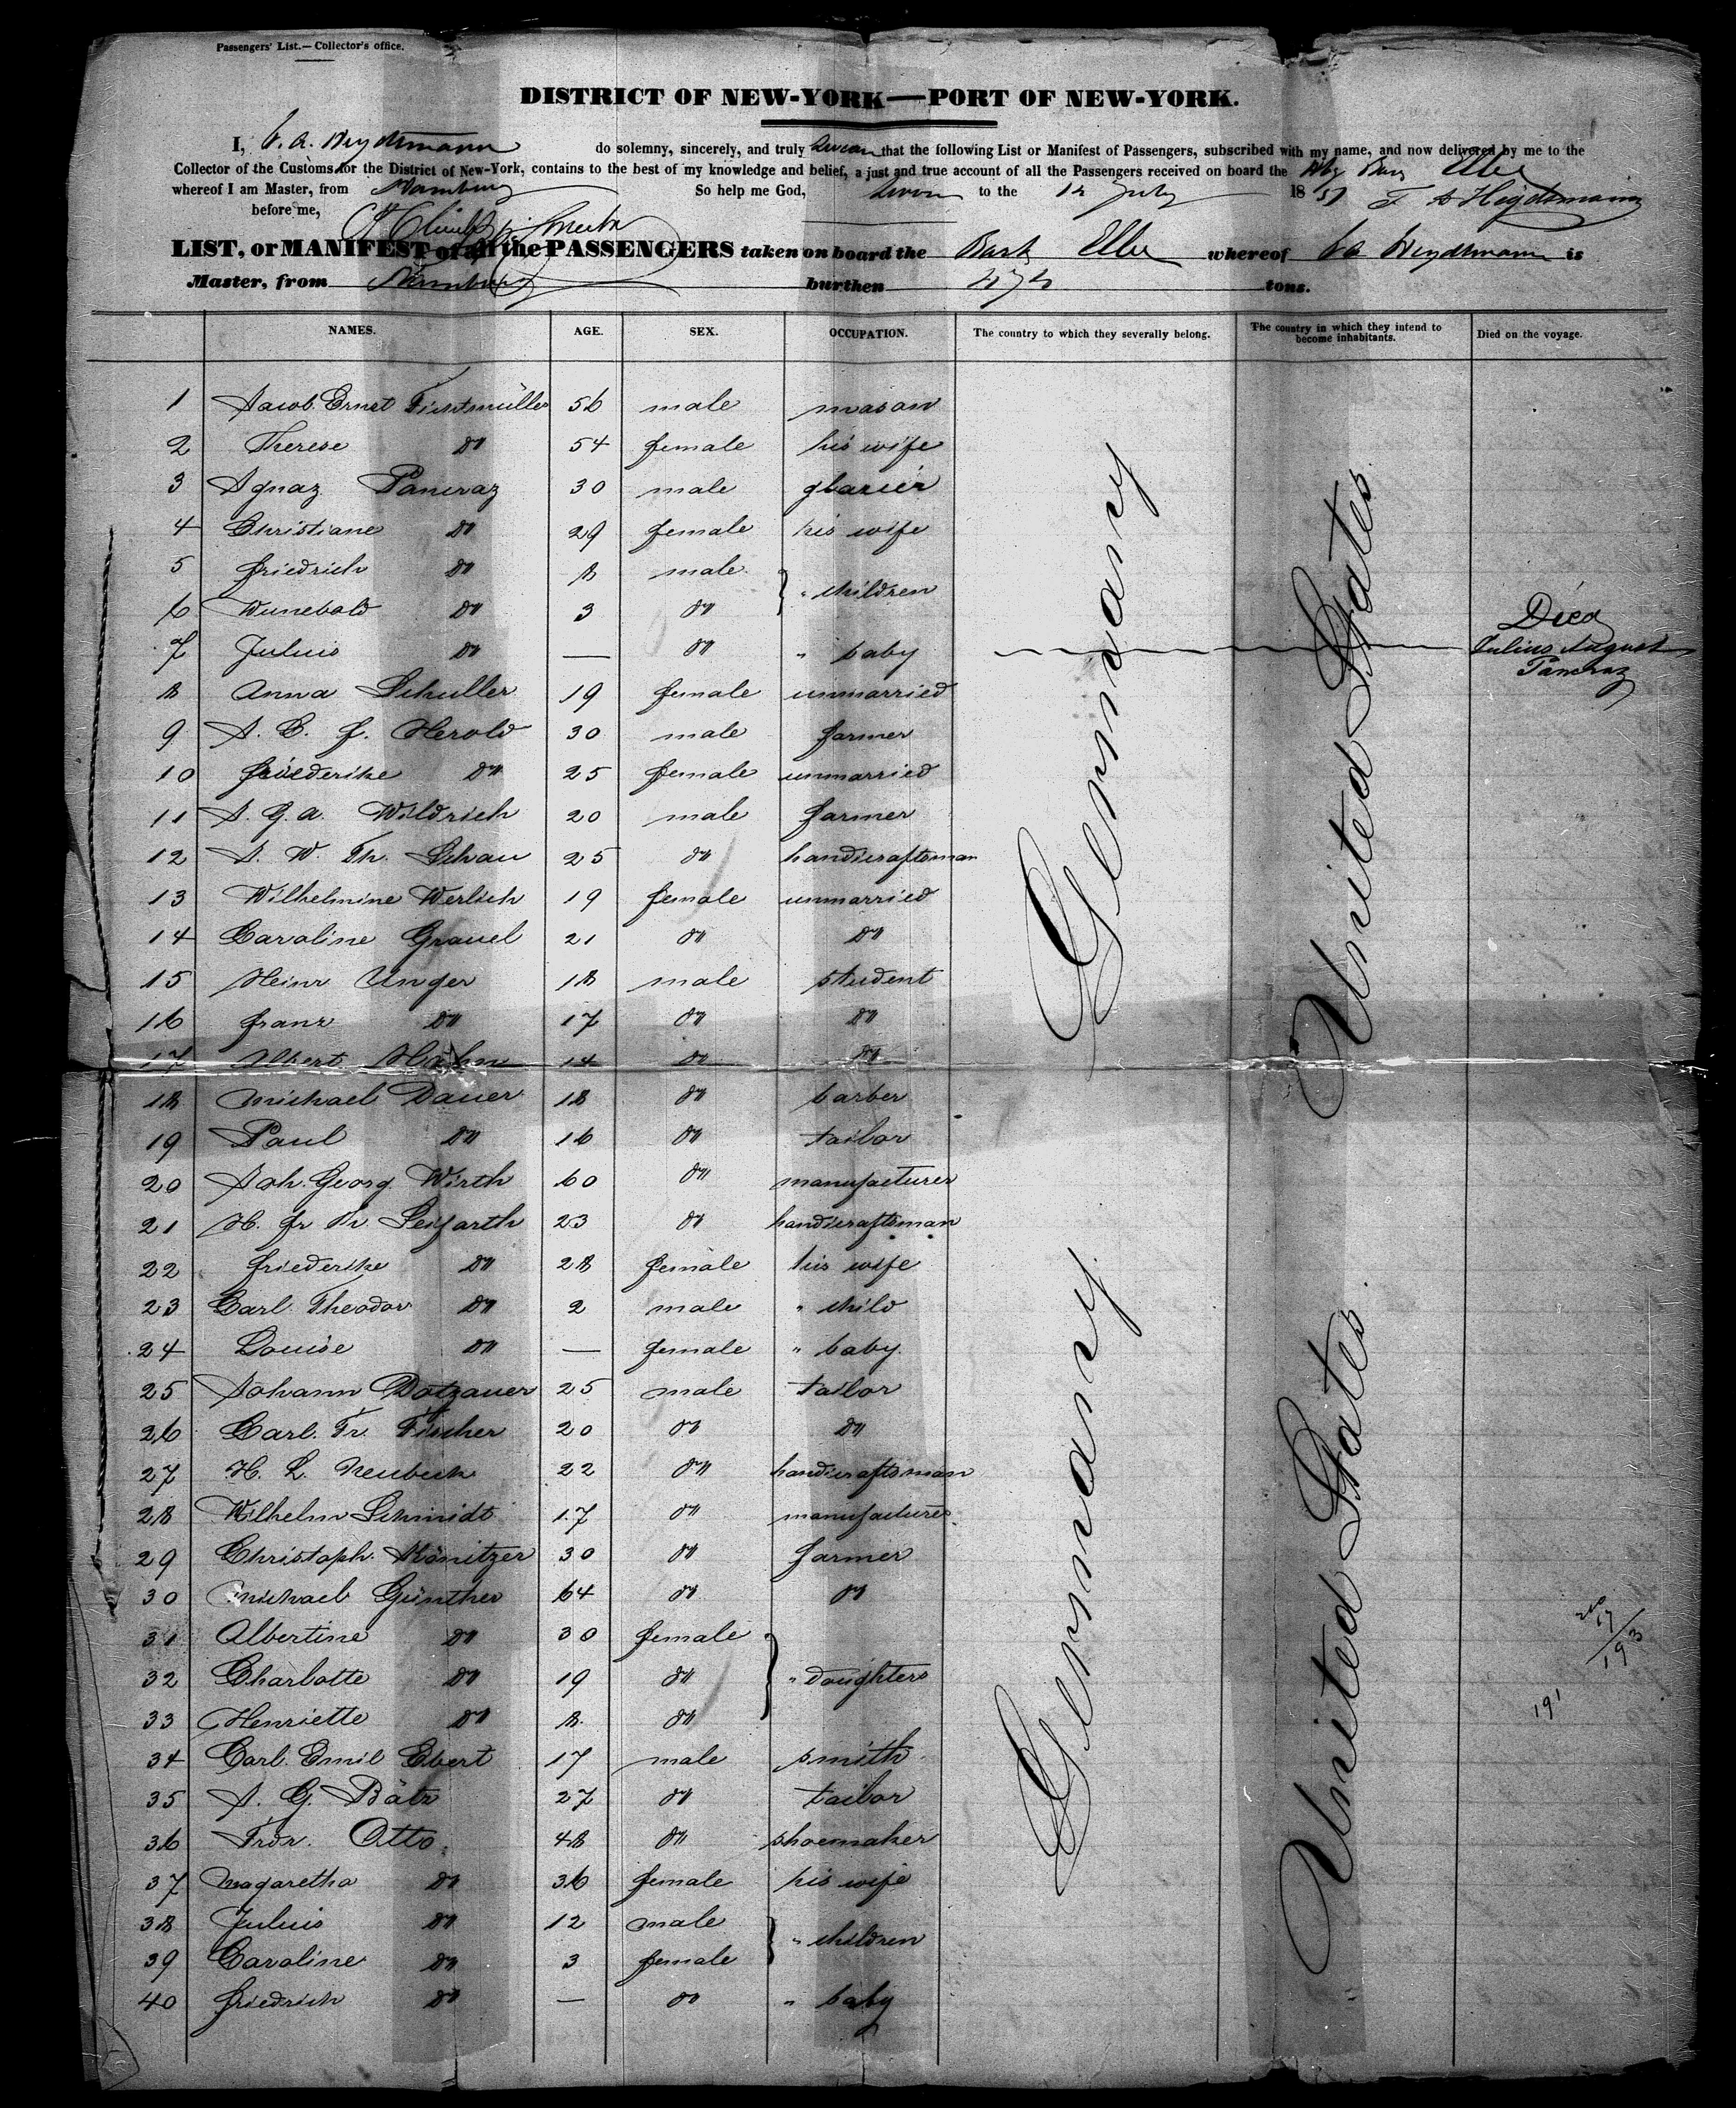 Passengers' List.—Collector's office.
DISTRICT OF NEW-YORK—PORT OF NEW-YORK.
I, do solemny, sincerely, and truly swear that the following List or Manifest of Passengers, subscribed with my name, and now delivered by me to the
Collector of the Customs for the District of New-York, contains to the best of my knowledge and belief, a just and true account of all the Passengers received on board the Elbe
whereof I am Master, from Hamburg So help me God, Sworn to the 12 July 1851
before me,
LIST, or MANIFEST of all the PASSENGERS taken on board the Bark Elbe whereof is
Master, from Hamburg burthen tons.
NAMES. AGE. SEX. OCCUPATION. The country to which they severally belong. The country in which they intend to become inhabitants. Died on the voyage.
1 Jacob Ernst Fichtmüller 56 male mason
2 Therese do 54 female his wife
3 Ignaz Pancraz 30 male glazier
4 Christiane do 29 female his wife
5 Friedrich do 8 male
" children
6 Wunebald do 3 do
7 Julius do — do " baby Died Julius August Pancraz
8 Anna Schuller 19 female unmarried
9 J. C. F. Herold 30 male farmer
10 Friederike do 25 female unmarried
11 J. G. A. Wildrich 20 male farmer
12 J. W. Th. Schau 25 do handicraftsman
13 Wilhelmine Werlich 19 female unmarried
14 Caroline Grauel 21 do do
15 Heinr Unger 18 male student
16 Franz do 17 do do
17 Albert Hahn 14 do do
18 Michael Bauer 18 do barber
19 Paul do 16 do tailor
20 Joh. Georg Wirth 60 do manufacturer
21 H. Fr Th. Seifarth 23 do handicraftsman
22 Friederike do 28 female his wife
23 Carl Theodor do 2 male " child
24 Louise do — female " baby
25 Johann Dotzauer 25 male tailor
26 Carl Fr. Fischer 20 do do
27 H. L. Neubeck 22 do handicraftsman
28 Wilhelm Schmidt 17 do manufacturer
29 Christoph Könitzer 30 do farmer
30 Michael Günther 64 do do
31 Albertine do 30 female
32 Charlotte do 19 do " daughters
33 Henriette do 8 do
34 Carl Emil Ebert 17 male smith
35 J. G. Bätz 27 do tailor
36 Frdr. Otto 48 do shoemaker
37 Magaretha do 36 female his wife
38 Julius do 12 male
" children
39 Caroline do 3 female
40 Friedrich do — do " baby
Germany
United States
Germany
United States
17
193
191